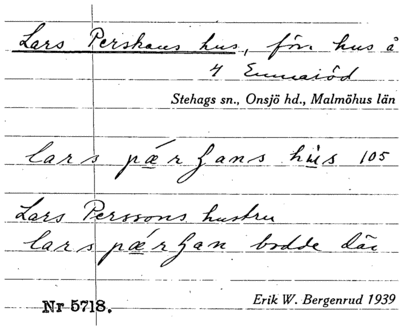 Lars Pershans hus, förr hus å
4 Emmaiöd
Stehags sn., Onsjö hd., Malmöhus län
lars pæ̱rhans hu̇s 105
Lars Perssons hustru
lars pæ̱rhan bodde där
Nr 5718.
Erik W. Bergenrud 1939